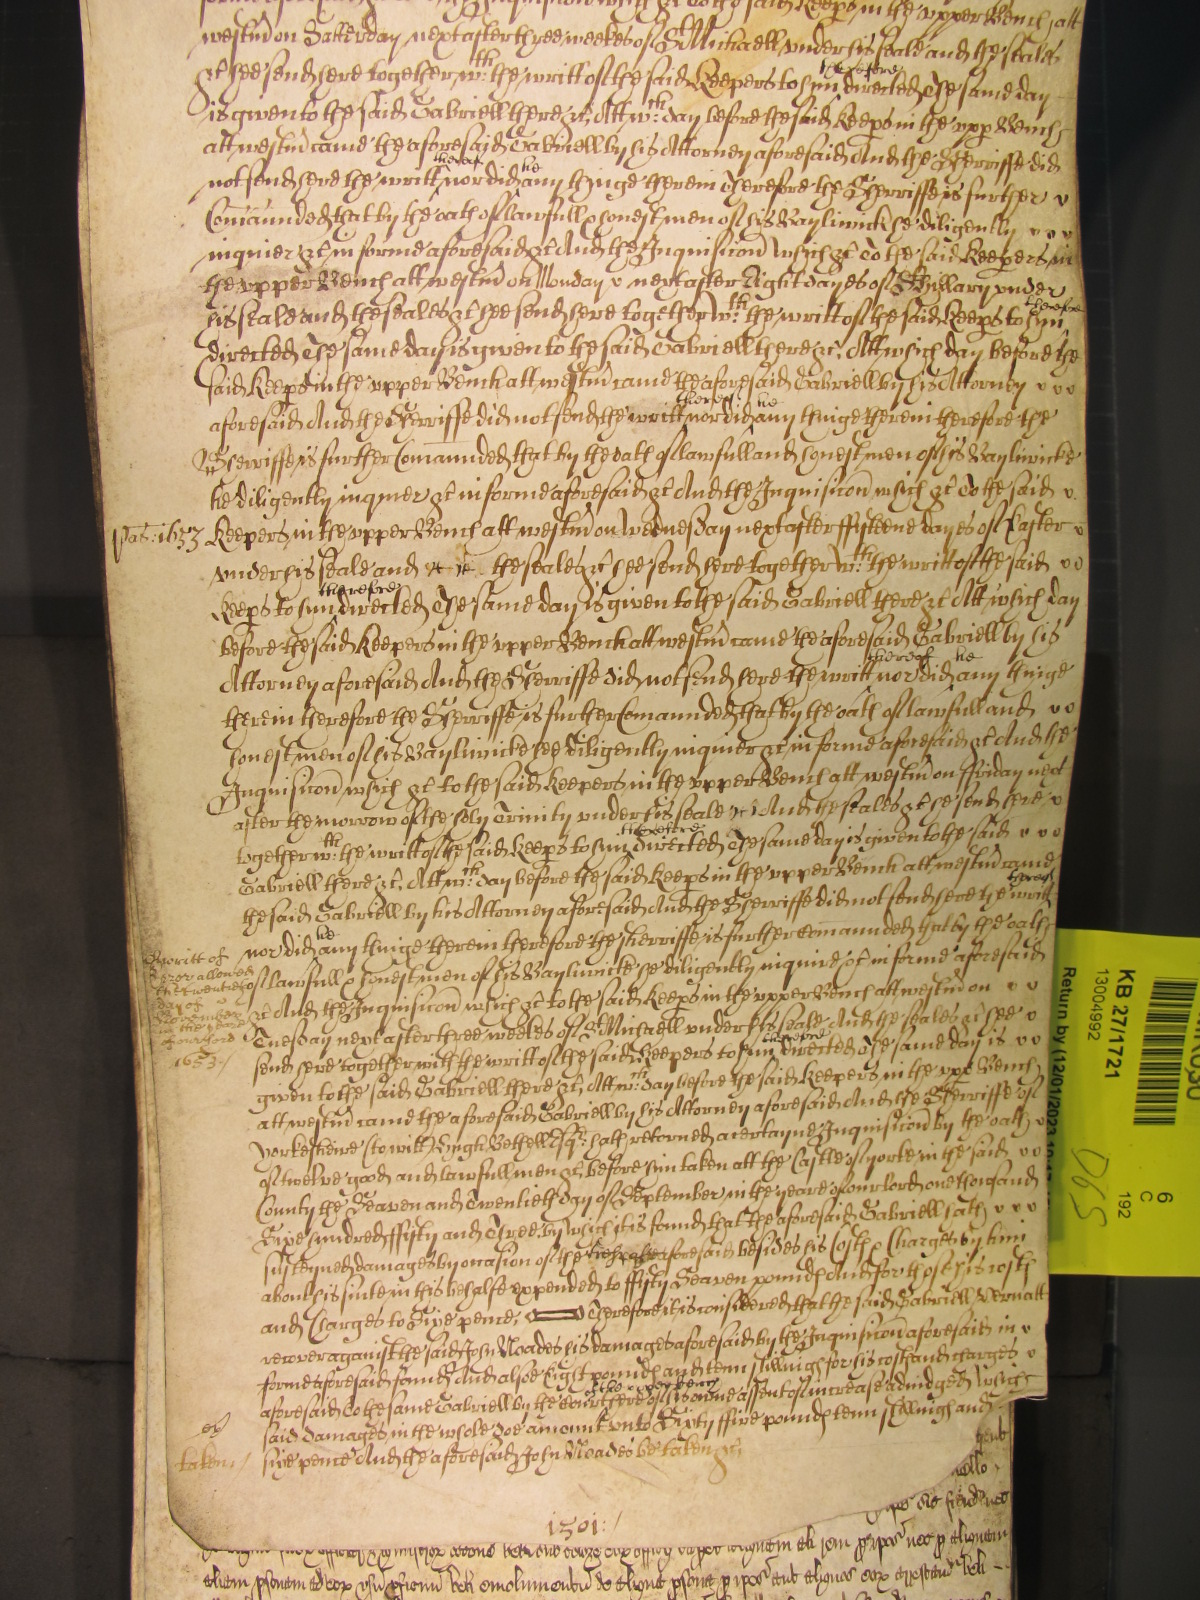 westm̃ on Satterday next after three weekes of St Michaell under his seale and the seales
&c hee send here together wth the writt of the said Keepers to him therefore directed The same day
is given to the said Gabriell there &c Att wch day before the said Keeps in the upp Bench
att westm̃ came the aforesaid Gabriell by his Attorney aforesaid And the Sherriffe did
not send here the writt thereof nor did he any thinge therein Therefore the Sherriffe is further
Comaunded that by the oath of lawfull & honest men of his Bayliwick he diligently
inquier &c in forme aforesaid &c And the Inquisicon which &c to the said Keepers in
the upper Bench att westm̃ on Monday next after Eight dayes of St Hillary under
his seale and the seales &c hee send here together wth the writt of the said Keeps to him therefore
directed The same day is given to the said Gabriell there &c. Att which day before the
said Keeps in the upper Bench att westm̃ came the aforesaid Gabriell by his Attorney
aforesaid And the Sherriffe did not send the writt thereof nor did he any thinge therein therefore the
Sherriffe is further Comaunded that by the oath of lawfull and honest men of his Bayliwicke
he diligently inquier &c in forme aforesaid &c And the Inquisicon which &c to the said
Pas: 1653 Keepers in the upper Bench att westm̃ on Wednesday next after fifteene dayes of Easter
under his seale and the seales &c hee send here together wth the writt of the said
Keeps to him therefore directed The same day is given to the said Gabriell there &c Att which day
before the said Keepers in the upper Bench att westm̃ came the aforesaid Gabriell by his
Attorney aforesaid And the Sherriffe did not send here the writt thereof nor did he any thinge
therein therefore the Sherriffe is further Comaunded that by the oath of lawfull and
honest men of his Bayliwicke hee diligently inquier &c in forme aforesaid &c And the
Inquisicon which &c to the said Keepers in the upper Bench att westm̃ on ffriday next
after the morrow of the holy Trinity under his seale And the seales &c he send here
together wth the writt of the said Keeps to him therefore directed The same day is given to the said
Gabriell there &c. Att wch day before the said Keeps in the upper Bench att westm̃ came
the said Gabriell by his Attorney aforesaid And the Sherriffe did not send here the writt thereof
nor did he any thinge therein therefore the sherriffe is further comaunded that by the oath
of lawfull & honest men of his Bayliwicke he diligently inquire &c in forme aforesaid
&c And the Inquisicon which &c to the said Keeps in the upper Bench att westm̃ on
Tuesday next after three weekes of St Michaell under his seale And the seales &c hee
send here together with the writt of the said Keepers to him therefore directed The same day is
given to the said Gabriell there &c. Att wch day before the said Keepers in the upp Bench
att westm̃ came the aforesaid Gabriell by his Attorney aforesaid And the Sherriffe of
Yorkesheire (to witt) Hugh Bethell Esqr hath returned a certayne Inquisicon by the oath
of twelve good and lawfull men &c before him taken att the Castle of Yorke in the said
County the Seaven and Twentieth day of September in the yeare of our lord one thousand
Sixe hundred ffifty and Three by which it is found that the aforesaid Gabriell hath
susteyned damages by occasion of the aforesaid besides his Costs & Charges by him
about his suite in this behalfe expended to ffifty Seaven pounds And for those his costs
and Charges to Sixe pence; Therefore it is considered that the said Gabriell Vernatt
recover against the said John Noades his damages aforesaid by the Inquisicon aforesaid in
forme aforesaid found And alsoe Eight pounds and tenn shillings for his costs and charges
aforesaid to the same Gabriell by the court here the upper bench of his owne assent of increase adiudged Which
said damages in the whole doe amount unto Sixty ffive pounds tenn shillings and
sixe pence And the aforesaid John Noades be taken &c
A writt of
Error allowed
the twentieth
day of
November
in the yeare
of our lord
1653
taken
1301:/
KB 27/1721
13004992
Return by (12/01/2023
6
C
192
D65